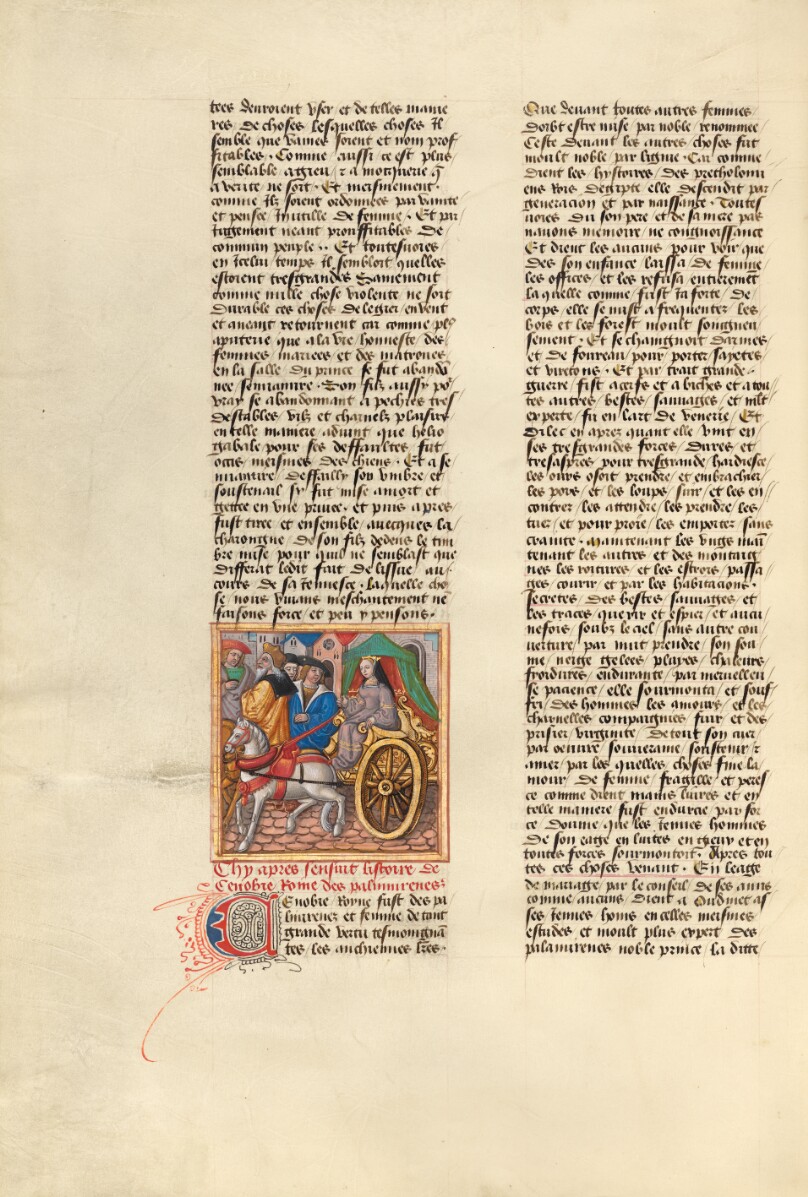 tees devroient user et de telles manie
res de choses lesquelles choses Il
semble que vaines soient et non prof
fitables. Comme aussi ce est plus
semblable a grieu / z a moquerie q̄
a verite ne soit. Et mesmement.
comme Ilz soient ordonnees par vanite
et pensee Inutille de femme. Et par
Jugement neant prouffitables de
commun peuple.. Et toutesuoies
en Icelui temps Il sembloit quelles
estoient tresgrandes Sainement
comme nulle chose violente ne soit
durable ces choses de legier en vent
et aneant retournent car comme
aputerie que a la vie honneste des
femmes mariees et des matrones
en la salle du prince se fut abandō
nee semiamire. Son filz aussy po
vray se abandonnant a pechies tres
destables vilz et charnelz plaisirs
en telle maniere aduint que helio
gabale pour ses deffaultes fut
occis mesmes des chiens. Et a se
miamire deffailly son umbre et
soustenail sy fut mise a mort et
gettee en une privee. et puis apres
fust tiree et ensemble / avecques la
charongne de son filz dedens le tim
bre mise pour quil ne semblast que
differast ledit fait de lissue au
cours de sa Jennesse. Laquelle cho
se nous vivans meschantement ne
faisons force et peu y pensons.
Chy apres sensuit listoire de
Cenobie Royne des palmirenes.
CEnobie Royne fust des pa
lmirenes et femme de tant
grande vertu tesmoignā
tes les anchiennes lr̄es.
Que devant toutes autres femmes
doibt estre mise par noble / renommee
Ceste devant les autres choses fut
moult noble / par ligne. Car comme
dient les hystoires / des ptetholomi
ens Rois degipte elle descendit par
generacion et par naissance. Toutes
uoies du son pere et de sa mere pas
nauons memoire / ne congnoissance
Et dient les aucuns pour voir que
des son enfance laissa / de femme
les offices / et les refusa entieremēt
laquelle comme / fust Ja forte / de
corps / elle se mist a frequenter les
bois et les forest moult songneu
sement. Et se chaingnoit darmes
et de foureau / pour porter / sayetes
et viretons. Et par trait grande.
guerre / fist a cerfs et a biches et a tou
tes autres / bestes / sauvages / et mlt
experte / fu en lart de venerie / Et
dilec en aprez quant elle vint en
ses tresgrandes forces / dures et
tresaspres pour tresgrande / hardiesse
les ours osoit prendre / et embrachier
les pors / et les loups / suir / et les en
contrer / les attendre / les prendre / les
tuer / et pour proie / les emporter sans
crainte. Maintenant les ungs main
tenant les autres et des montaig
nes les roctures / et les estrois / passa
ges / courir / et par les habitacions.
secretes / des bestes / sauvages / et
les traces querir et espier / et aucu
nefois / soubz le ciel / sans autre cou
verture / par nuit prendre / son som
me / neige gelees / pluyes / chaleurs
froidures / endurante / par merveilleu
se pacience / elle sourmonta / et souf
fri / des hommes / les amours / et les
charnelles compaignies fuir et des
prisier / virginite / de tout son cuer
par oeuvre / souveraine / soustenir z
amer / par les quelles choses / fine la
mour / de femme / fragille / et peres
ce comme dient mains livres / et en
telle maniere / fust endurcie par for
ce donnie que les Jennes hommes
de son eage en luites en gieux et en
toutes forces sourmontoit. Apres tou
tes ces choses / venant. En leage
de mariage / par le conseil / de ses amis
comme aucuns dient a Oudinet as
ses Jennes homs en celles mesmes
estudes et moult plus expert des
palmirenes noble prince / la ditte